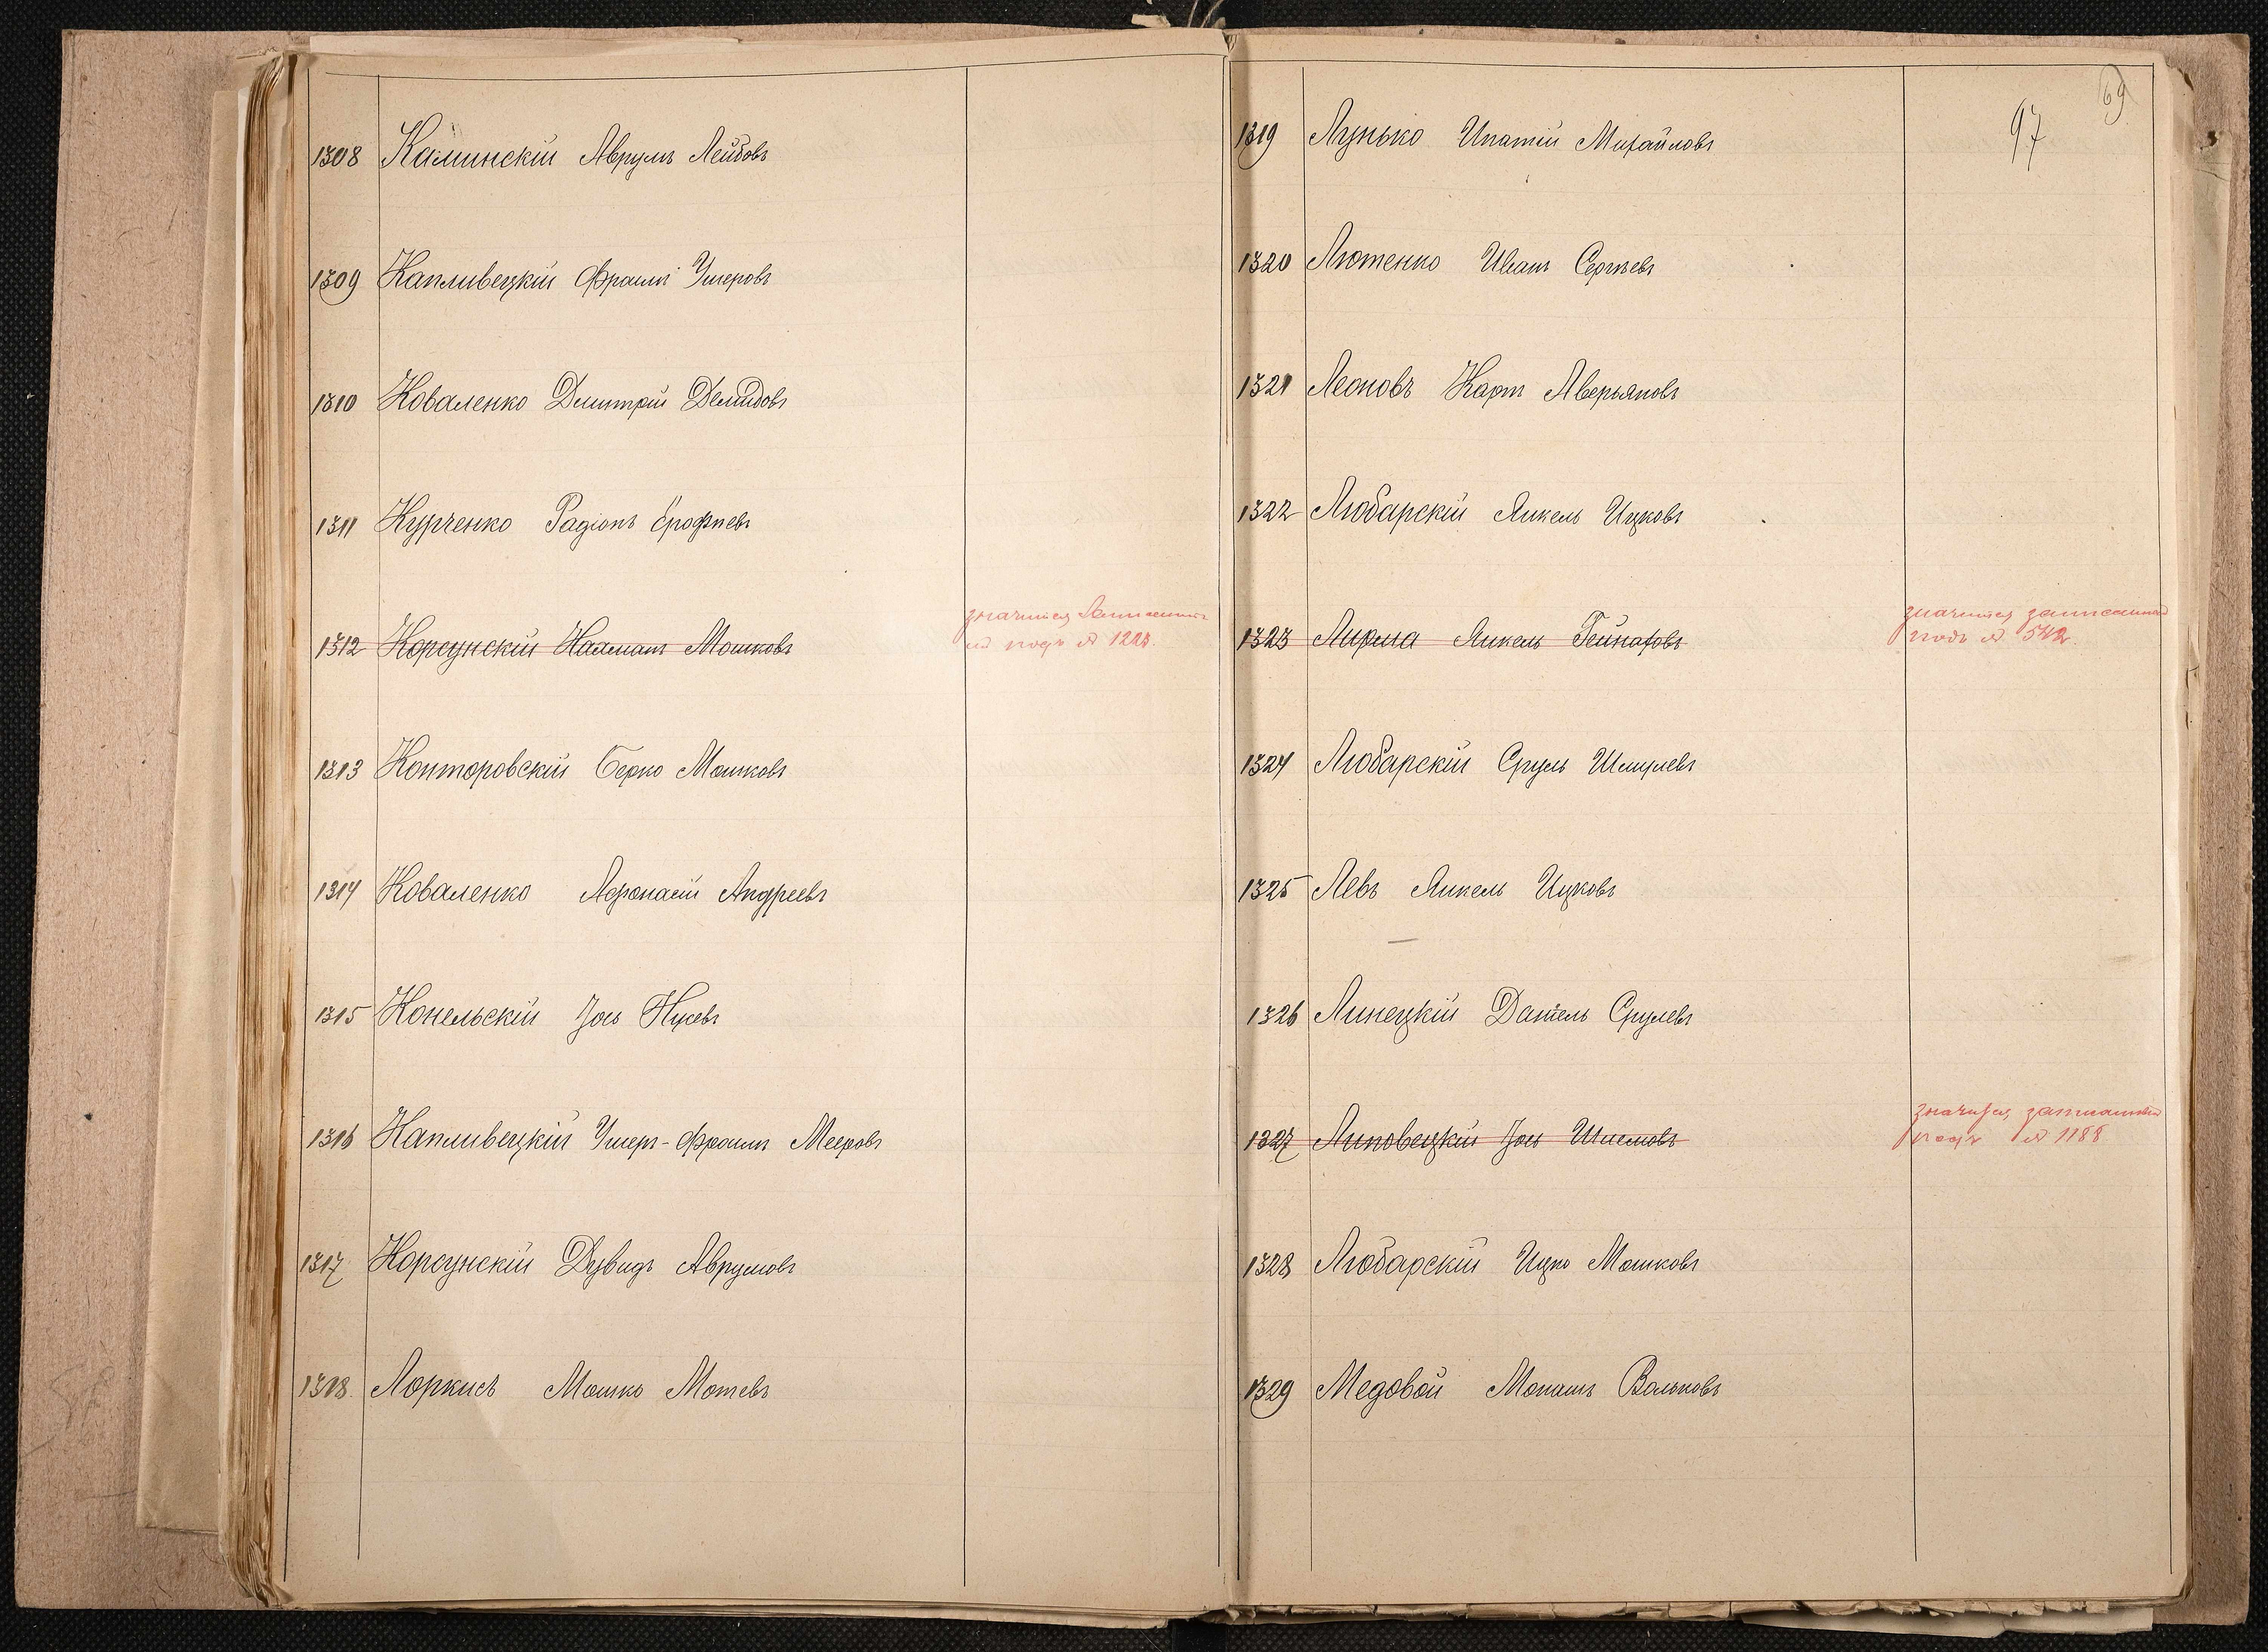 1308 Калинскій Аврумъ Лейбовъ
1309 Капливецкій Фроимъ Умеровъ
1310 Коваленко Дмитрій Демидовъ
1311 Курченко Радіонъ Ерофѣевъ
1312 Корсунскій Мошковъ
значится записанный
подъ № 1223.
1313 Конторовскій Берко Мошковъ
1314 Коваленко Афонасій Андреевъ
1315 Конельскій Іось Нусевъ
1316 Капливецкій Умеръ-Фроимъ Мееровъ
1317 Корсунскій Дувидъ Аврумовъ
1318. Лоркисъ Мошко Мотевъ
69
97
1319 Лунько Ипатій Михайловъ
1320 Лютенко Иванъ Сергѣевъ
1321 Леоновъ Карпъ Аверьяновъ
1322 Любарскій Янкель Ицковъ
1323 Янкель
значится записанный
подъ № 542.
1324 Любарскій Сруль Шмулевъ
1325 Левъ Янкель Ицковъ
1326 Линецкій Даніель Срулевъ
1327 Липовецкій Іось Шлемовъ
значится записанный
подъ № 1188
1328 Любарскій Ицко Мошковъ
1329 Медовой Монашъ Вольковъ